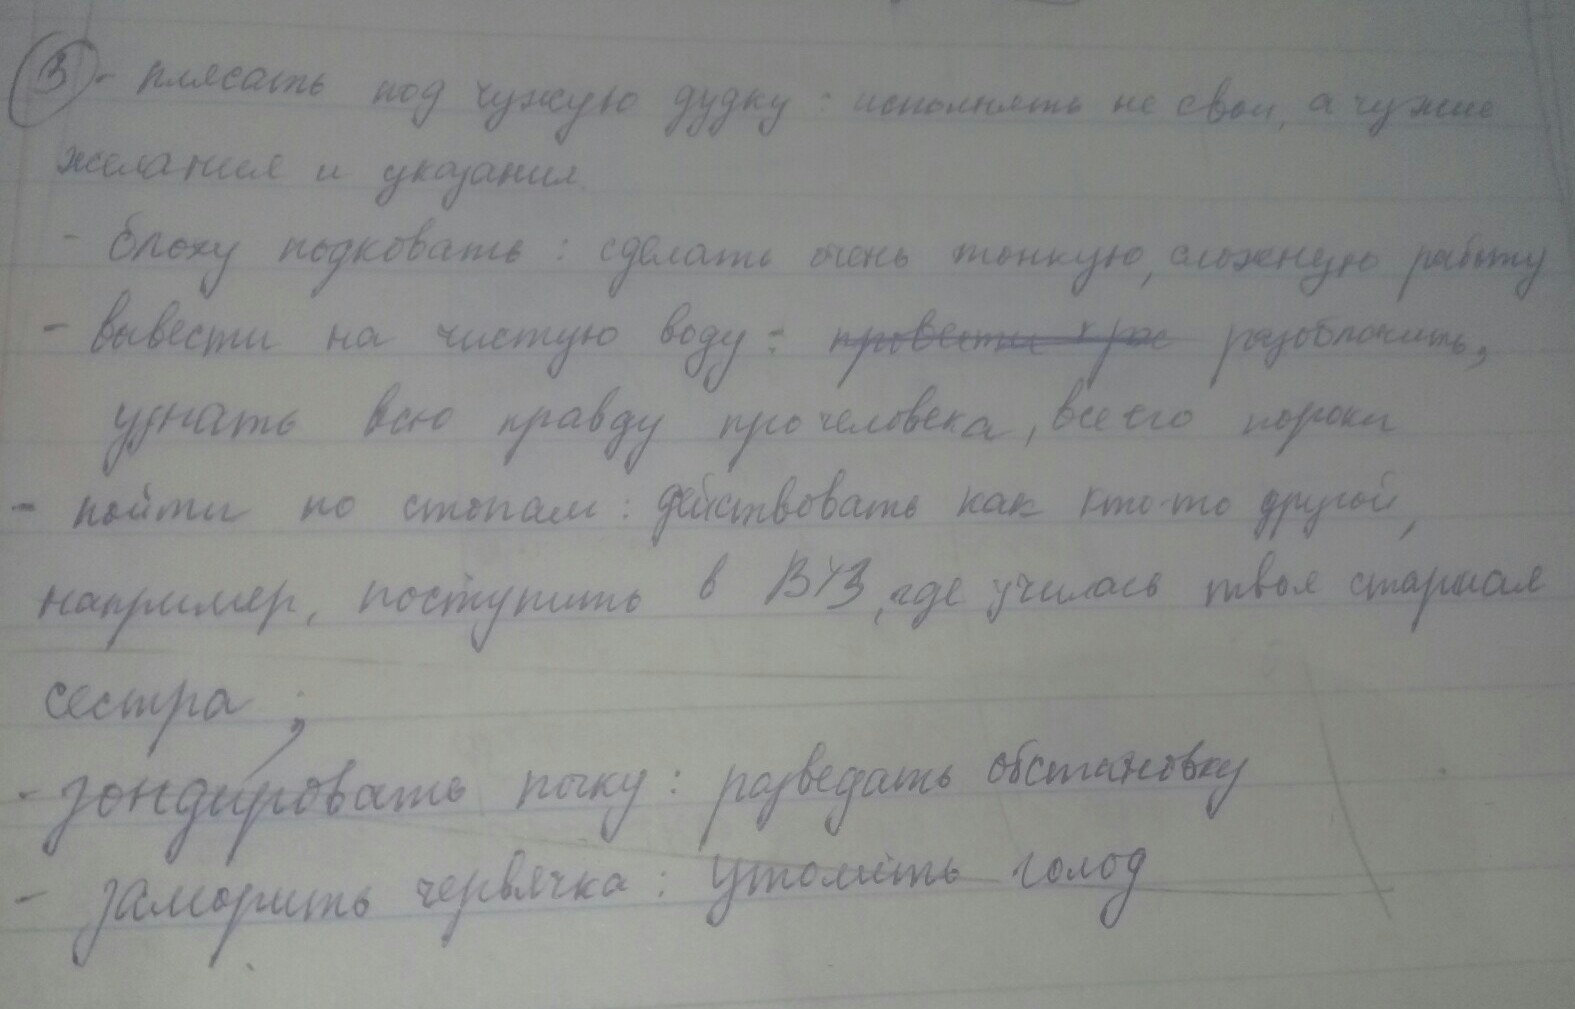 3 - плясать под чужую дудку : исполнять не свои, а чужие
желания и указания.
- блоху подковать : сделать очень тонкую, сложную работу
- вывести на чистую воду : разоблачить,
узнать всю правду про человека, все его пороки
- пойти по стопам : действовать как кто-то другой,
например, поступить в ВУЗ, где училась твоя старшая
сестра ;
- зондировать почку : разведать обстановку
- заморить червячка : утолить голод